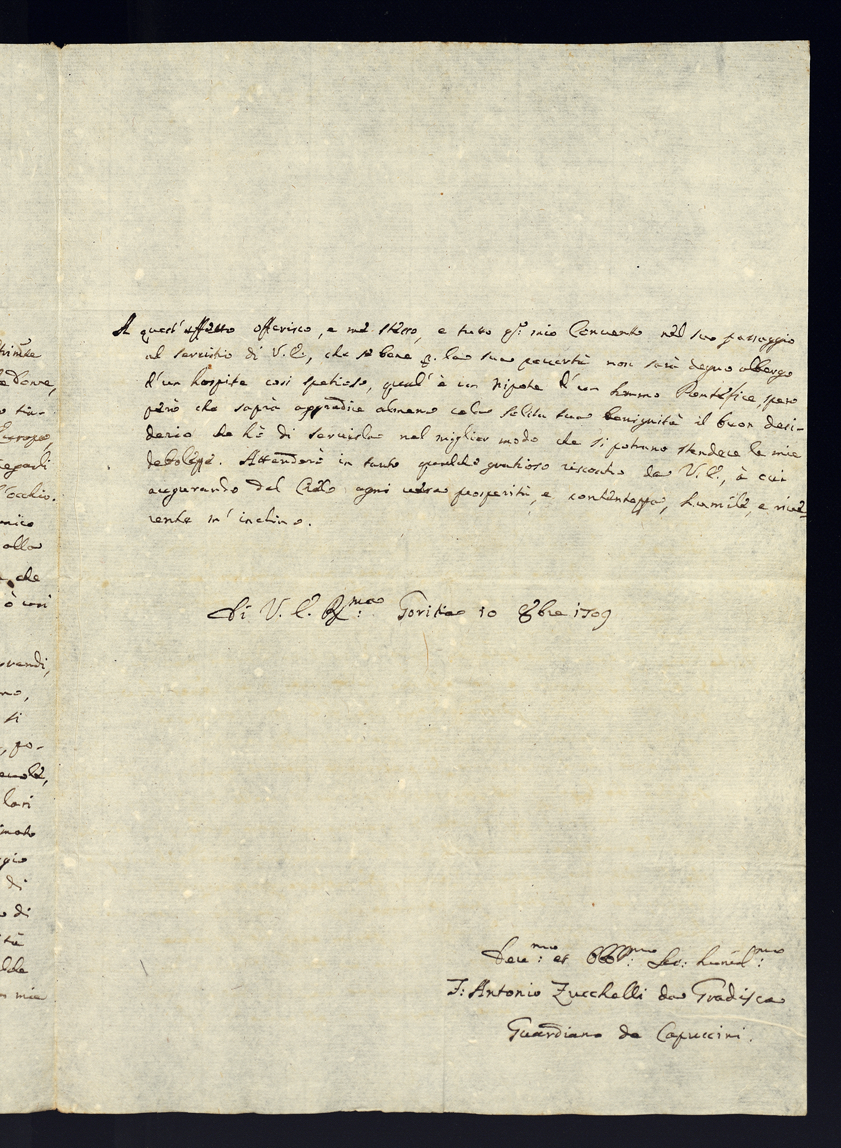 A quest' effetto offerisco, e me stesso, e tutto q.to mio Convento nel suo passaggio
al servitio di V. E., che se bene p. la sua povertà non sarà degno albergo
d'un hospite così spetioso, qual' è un Nipote d'un sommo Pontefice, spero
però che saprà aggradire almeno colla solita sua benignità il buon desi-
derio che hò di servirla nel miglior modo che si potrano stendere le mie
debolezze. Attenderò in tanto qualche gratioso riscontro da V. E., à cui
augurando dal Cielo ogni vera prosperità, e contentezza, humile, e rive-
rente m' inchino.
Di V. E. R.ma Goritia 10 8bre 1709
Dev.mo et Obb.mo Ser: humil.mo
F: Antonio Zucchelli da Gradisca
Guardiano de Capuccini.
trimte
e Dorre,
Europa,
l'occhio.
allo
che
ò così
si
lari
di
di
mie